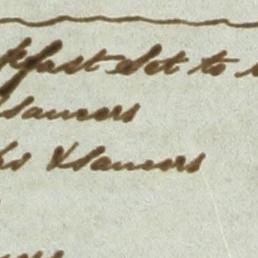 kfast Set to
saucers
& saucers